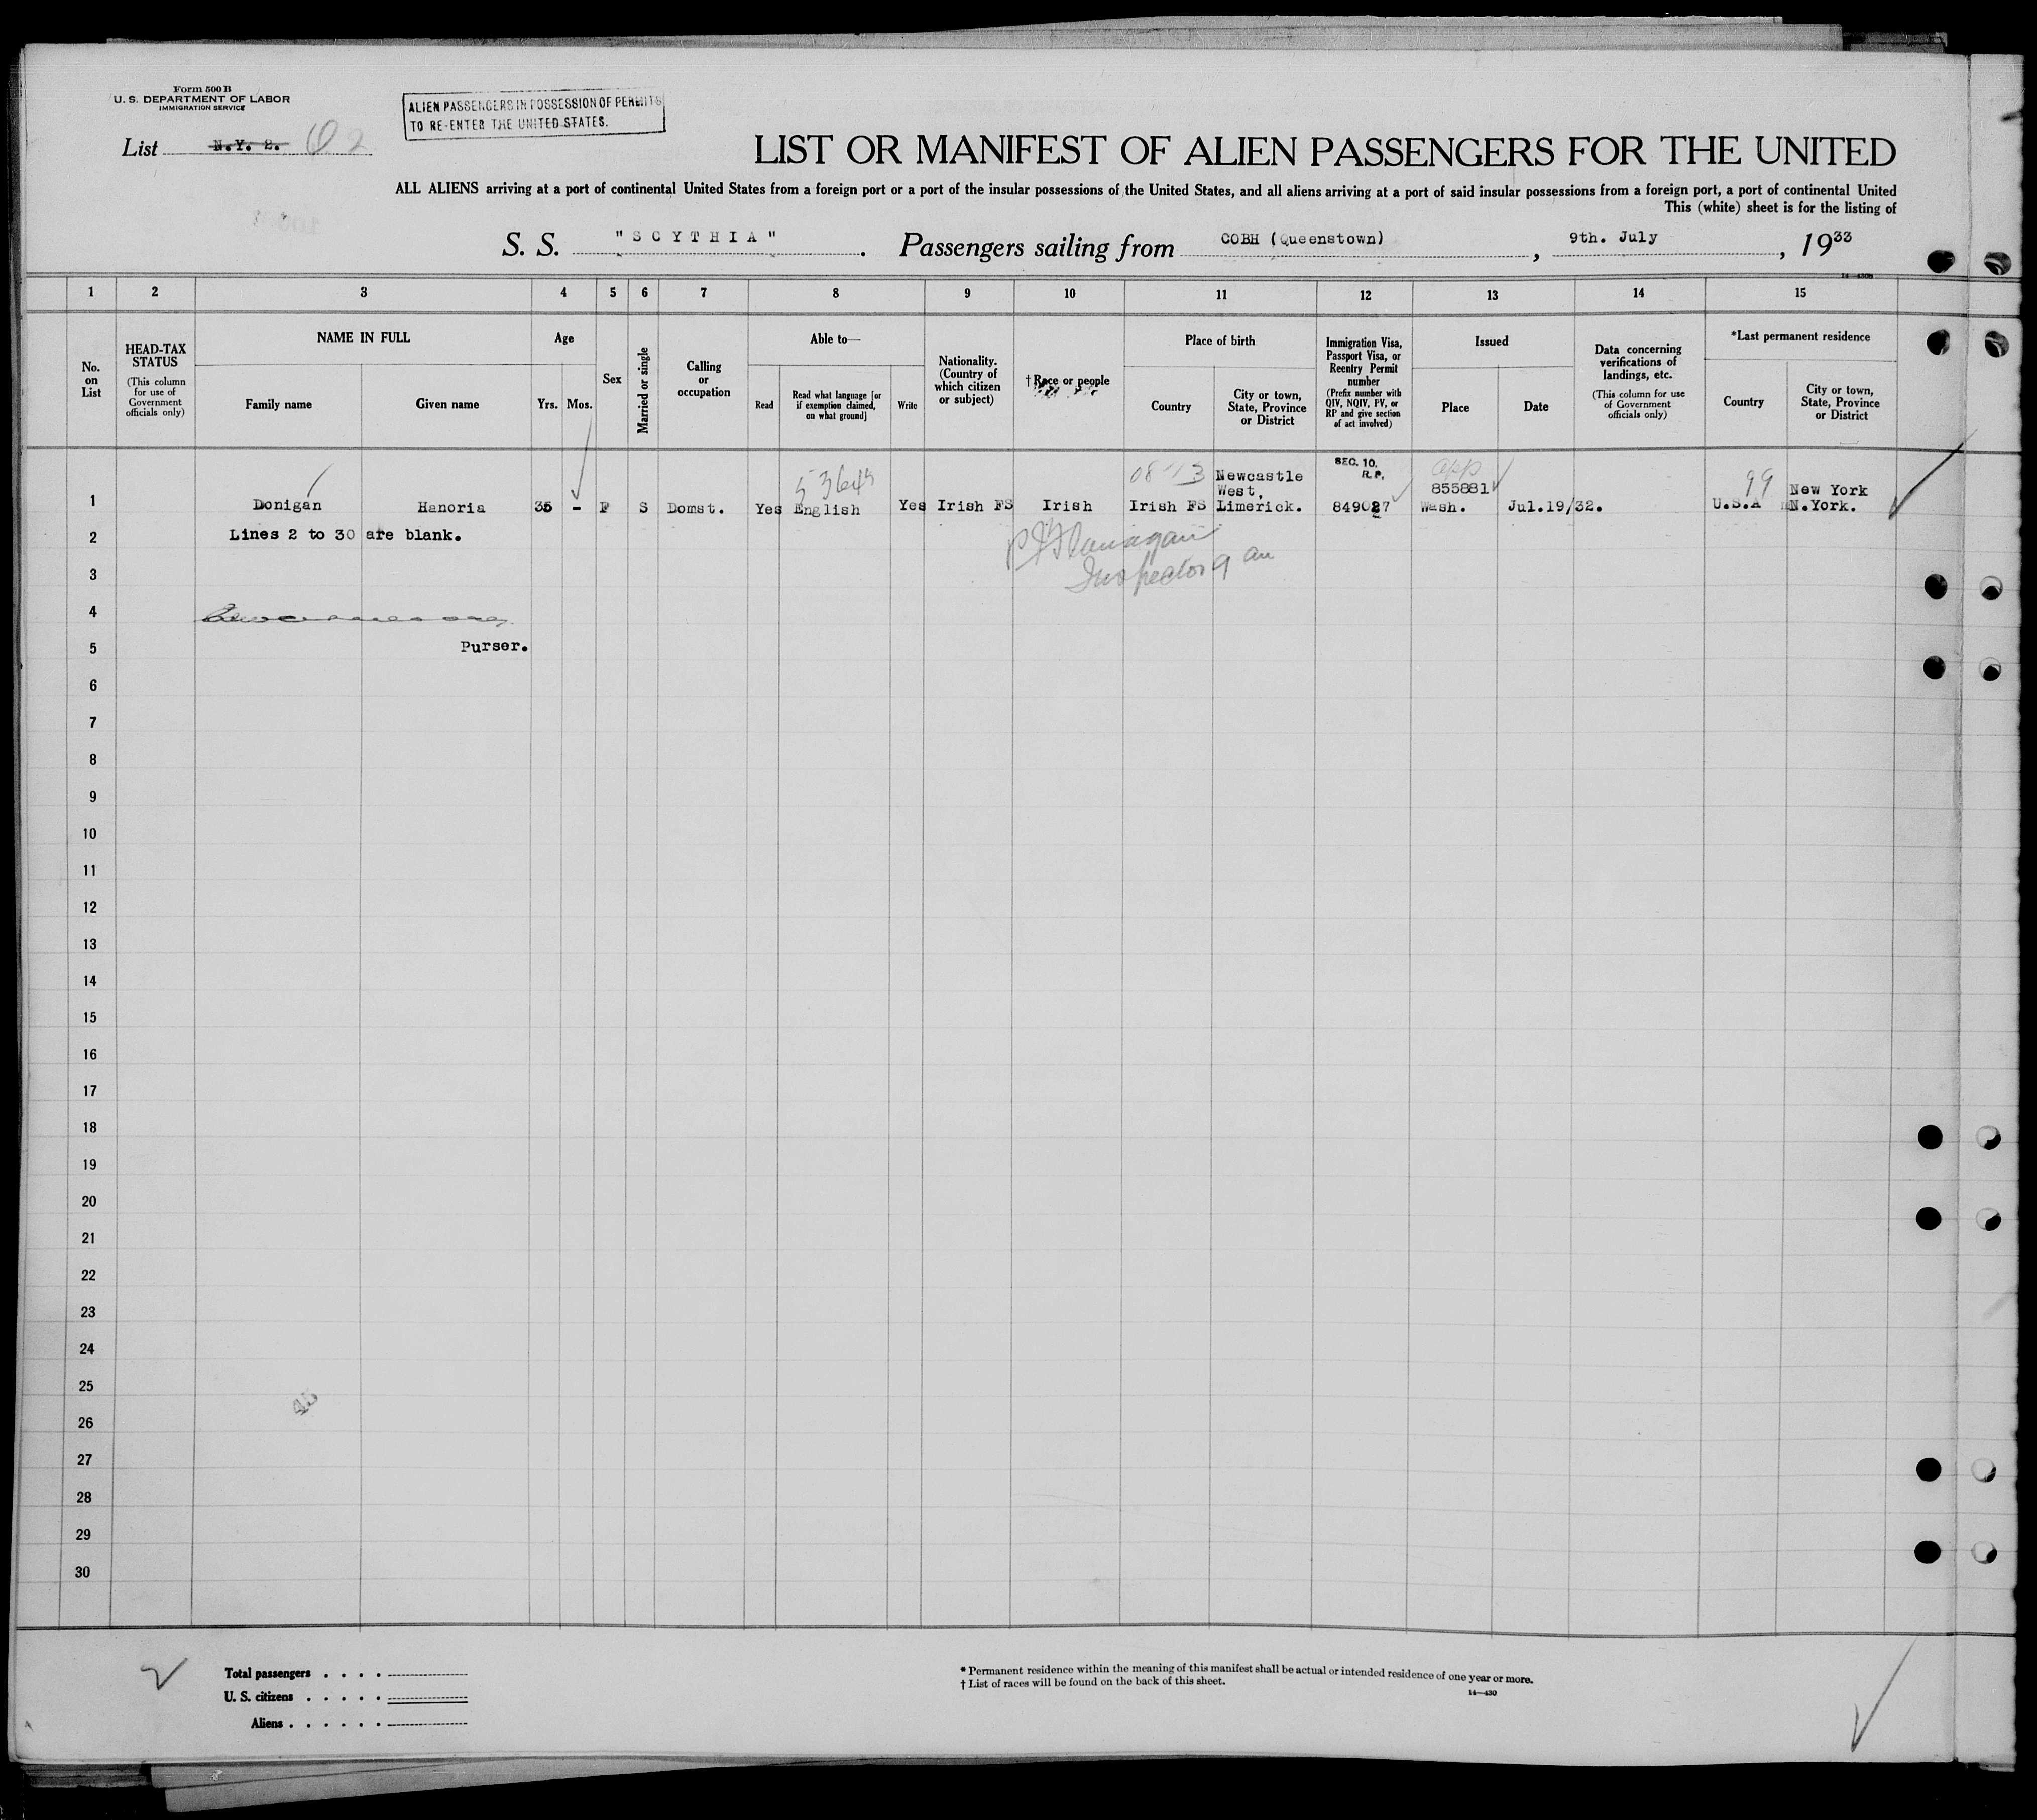 Form 500 B
U. S. DEPARTMENT OF LABOR
IMMIGRATION SERVICE
ALIEN PASSENGERS IN POSSESSION OF PERMITS
TO RE-ENTER THE UNITED STATES.
List N.Y. 2.
LIST OR MANIFEST OF ALIEN PASSENGERS FOR THE UNITED
ALL ALIENS arriving at a port of continental United States from a foreign port or a port of the insular possessions of the United States, and all aliens arriving at a port of said insular possessions from a foreign port, a port of continental United
This (white) sheet is for the listing of
S. S. "SCYTHIA". Passengers sailing from COBH (Queenstown), 9th. July, 1933
1 2 3 4 5 6 7 8 9 10 11 12 13 14 15
No. on List
HEAD-TAX STATUS
(This column for use of Government officials only)
NAME IN FULL
Family name
Given name
Age
Yrs. Mos.
Sex
Married or single
Calling or occupation
Able to—
Read
Read what language [or if exemption claimed, on what ground]
Write
Nationality. (Country of which citizen or subject)
† Race or people
Place of birth
Country
City or town, State, Province or District
Immigration Visa, Passport Visa, or Reentry Permit number
(Prefix number with QIV, NQIV, PV, or RP and give section of act involved)
Issued
Place
Date
Data concerning verifications of landings, etc.
(This column for use of Government officials only)
*Last permanent residence
Country
City or town, State, Province or District
SEC. 10.
R.P.
08 Newcastle
West, 855881 99 New York
1 Donigan Hanoria 35 - F S Domst. Yes English Yes Irish FS Irish Irish FS Limerick. 849027 Wash. Jul.19/32. U.S.A N.York.
2 Lines 2 to 30 are blank.
P J Flanagan
3 Inspector
4
5 Purser.
6
7
8
9
10
11
12
13
14
15
16
17
18
19
20
21
22
23
24
25
26
27
28
29
30
Total passengers . . . .
U. S. citizens . . . . .
Aliens . . . . . .
* Permanent residence within the meaning of this manifest shall be actual or intended residence of one year or more.
† List of races will be found on the back of this sheet.
14—430